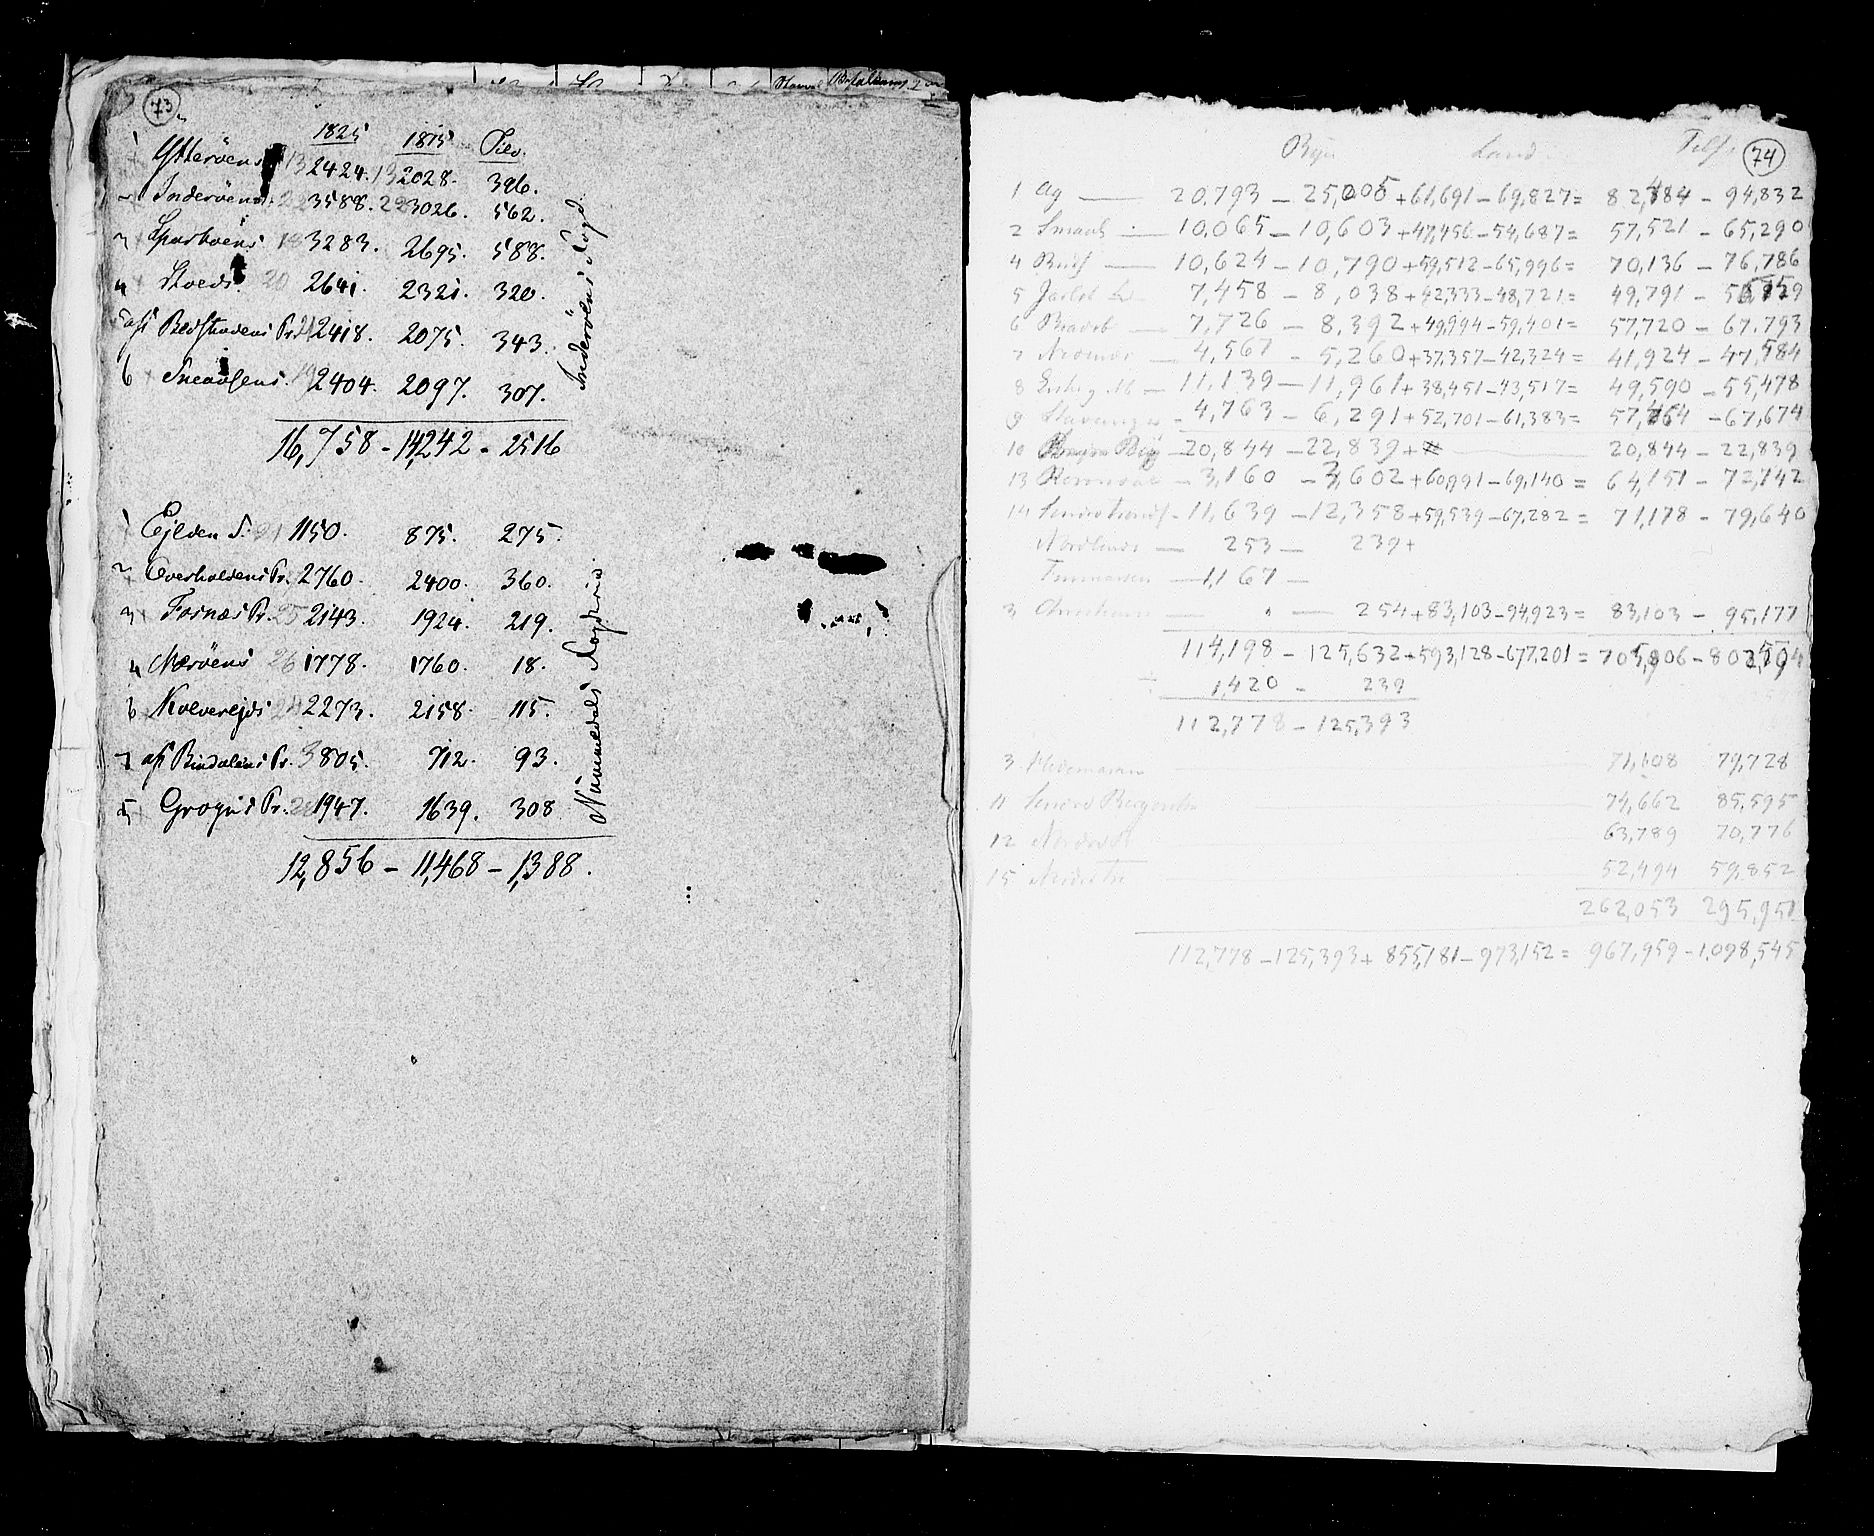 73
1825 1815 Tilv.
1 Ytterøens 13 2424. 13 2028. 396.
2 Inderøens 22 3588. 22 3026. 562.
3 Sparboens 18 3283. 2695. 588.
4 Stoeds. 20 2641. 2321. 320.
5 af Bedstadens Pr. 21 2418. 2075. 343.
6 Sneaasens. 19 2404. 2097. 307.
16,758 - 14,242 - 2516
Inderøens Fogd.
1 Ejlden S. 21 1150. 875. 275
2 Overhaldens Pr. 2760. 2400. 360.
3 Fosnæs Pr. 25 2143. 1924. 219.
4 Nærøens 26 1778. 1760. 18.
6 Kolvereids 24 2273. 2158. 115.
7 af Bindalens Pr. 3 805. 712. 93.
5 Grogns Pr. 22 1947. 1639. 308
12,856 - 11,468 - 1,388.
Nummedals Fogderie
74
Byer Land Tilf
1 Ag 20,793 - 25,005 + 61,691 - 69,827 = 82,484 - 94,832
2 Smaal 10,065 - 10,603 + 47,456 - 54,687 = 57,521 - 65,290
4 Busk 10,624 - 10,790 + 59,512 - 65,996 = 70,136 - 76,786
5 Jarlsb L 7,458 - 8,038 + 42,333 - 48,721 = 49,791 -
6 Bradsb 7,726 - 8,392 + 49,994 - 59,401 = 57,720 - 67,793
7 Nedenes 4,567 - 5,260 + 37,357 - 42,324 = 41,924 - 47,584
8 11,139 - 11,961 + 38,451 - 43,517 = 49,590 - 55,478
9 Stavanger 4,763 - 6,291 + 52,701 - 61,383 = 57,464 - 67,674
10 Bergens By 20,844 - 22,839 + 20,844 - 22,839
13 Romsdal - 3,160 - 3,602 + 60,991 - 69,140 = 64,151 - 72,742
14 Søndre Trondh - 11,639 - 12,358 + 59,539 - 67,282 = 71,178 - 79,640
Nordlands 253 - 239 +
Finmarken 1,167 -
3 Christians 254 + 83,103 - 94,923 = 83,103 - 95,177
114,198 - 125,632 + 593,128 - 677,201 = 705,906 -
÷ 1,420 - 239
112,778 - 125,393
3 Hedemarken 71,108 79,728
11 Søndre Bergenhu 74,662 85,595
12 Nordre B 63,789 70,776
15 Nordre Tr 52,494 59,852
262,053 295,951
112,778 - 125,393 + 855,181 - 973,152 = 967,959 - 1,098,545